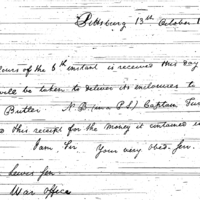 Pittsburg 13th October 1
ours of the 6th instant is received this day
ill be taken to deliver its enclosures to
Butler. N.B. (in a P.S.) Captain Tur
this receipt for the money it contained i
I am, Sir Your very obed. Ser.
Lewis Jun.
War Office